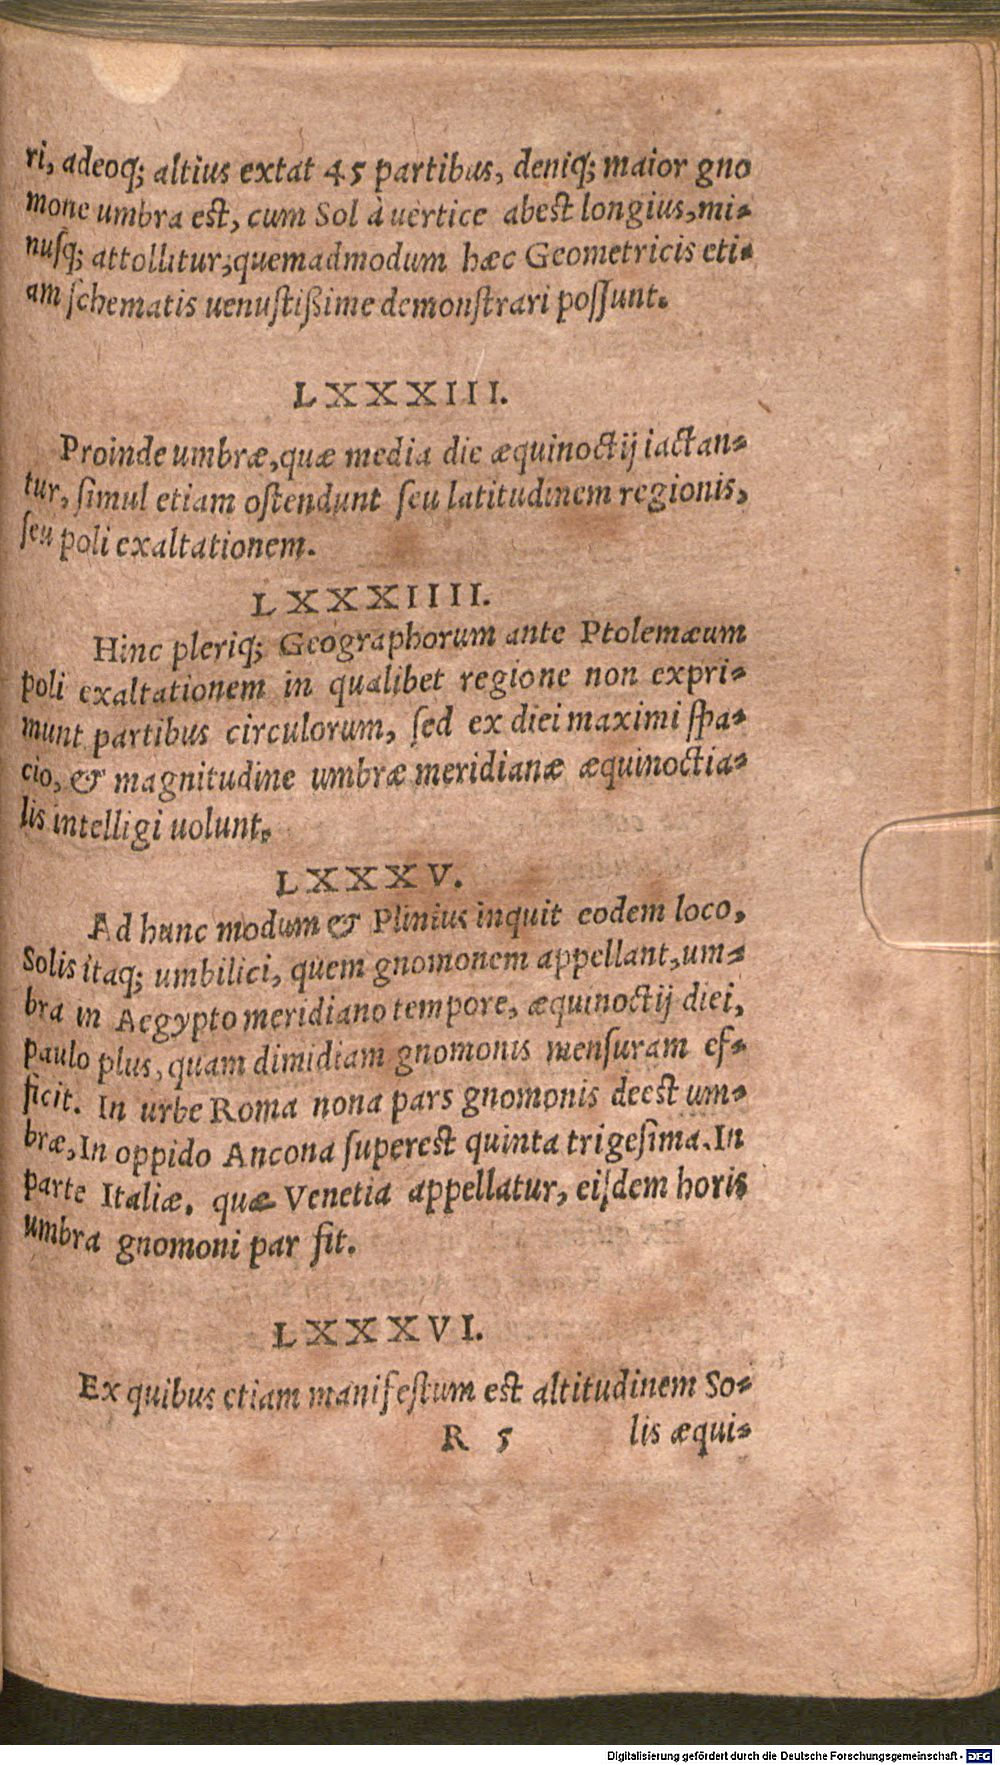 ri, adeoq; altius extat 45 partibus, deniq; maior gno
mone umbra est, cum Sol à uertice abest longius, mi-
nusq; attollitur, quemadmodum hæc Geometricis eti-
am schematis uenustißime demonstrari possunt.
LXXXIII.
Proinde umbræ, quæ media die æquinoctij iactan-
tur, simul etiam ostendunt seu latitudinem regionis,
seu poli exaltationem.
LXXXIIII.
Hinc pleriq; Geographorum ante Ptolemæum
poli exaltationem in qualibet regione non expri-
munt partibus circulorum, sed ex diei maximi spa-
cio, & magnitudine umbræ meridianæ æquinoctia-
lis intelligi uolunt.
LXXXV.
Ad hunc modum & Plinius inquit eodem loco,
Solis itaq; umbilici, quem gnomonem appellant, um-
bra in Aegypto meridiano tempore, æquinoctij diei,
paulo plus, quam dimidiam gnomonis mensuram ef-
ficit. In urbe Roma nona pars gnomonis deest um-
bræ, In oppido Ancona superest quinta trigesima. In
parte Italiæ. quæ Venetia appellatur, eisdem horis
umbra gnomoni par fit.
LXXXVI.
Ex quibus etiam manifestum est altitudinem So-
R 5 lis æqui-
Digitalisierung gefördert durch die Deutsche Forschungsgemeinschaft - DFG